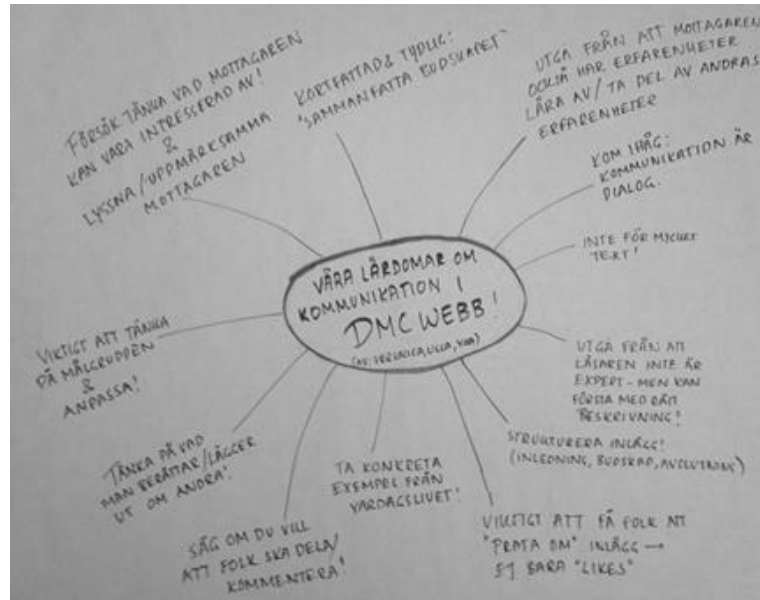 FÖRSÖK TÄNKA VAD MOTTAGAREN
KAN VARA INTRESSERAD AV!
&
LYSSNA/UPPMÄRKSAMMA
MOTTAGAREN
KORTFATTAD & TYDLIG:
"SAMMANFATTA BUDSKAPET"
UTGÅ FRÅN ATT MOTTAGAREN
OCKSÅ HAR ERFARENHETER
LÄRA AV/TA DEL AV ANDRAS
ERFARENHETER
KOM IHÅG:
KOMMUNIKATION ÄR
DIALOG.
INTE FÖR MYCKET
TEXT!
VÅRA LÄRDOMAR OM
KOMMUNIKATION I
DMC WEBB!
(AV: VERONICA, ULLA, YIVA)
UTGÅ FRÅN ATT
LÄSAREN INTE ÄR
EXPERT - MEN KAN
FÖRSTÅ MED RÄTT
BESKRIVNING!
STRUKTURERA INLÄGG!
(INLEDNING, BUDSKAP, AVSLUTNING)
VIKTIGT ATT FÅ FOLK ATT
"PRATA OM" INLÄGG →
EJ BARA "LIKES"
TA KONKRETA
EXEMPEL FRÅN
VARDAGSLIVET!
SÄG OM DU VILL
ATT FOLK SKA DELA/
KOMMENTERA!
TÄNKA PÅ VAD
MAN BERÄTTAR/LÄGGER
UT OM ANDRA!
VIKTIGT ATT TÄNKA
PÅ MÅLGRUPPEN
&
ANPASSA!